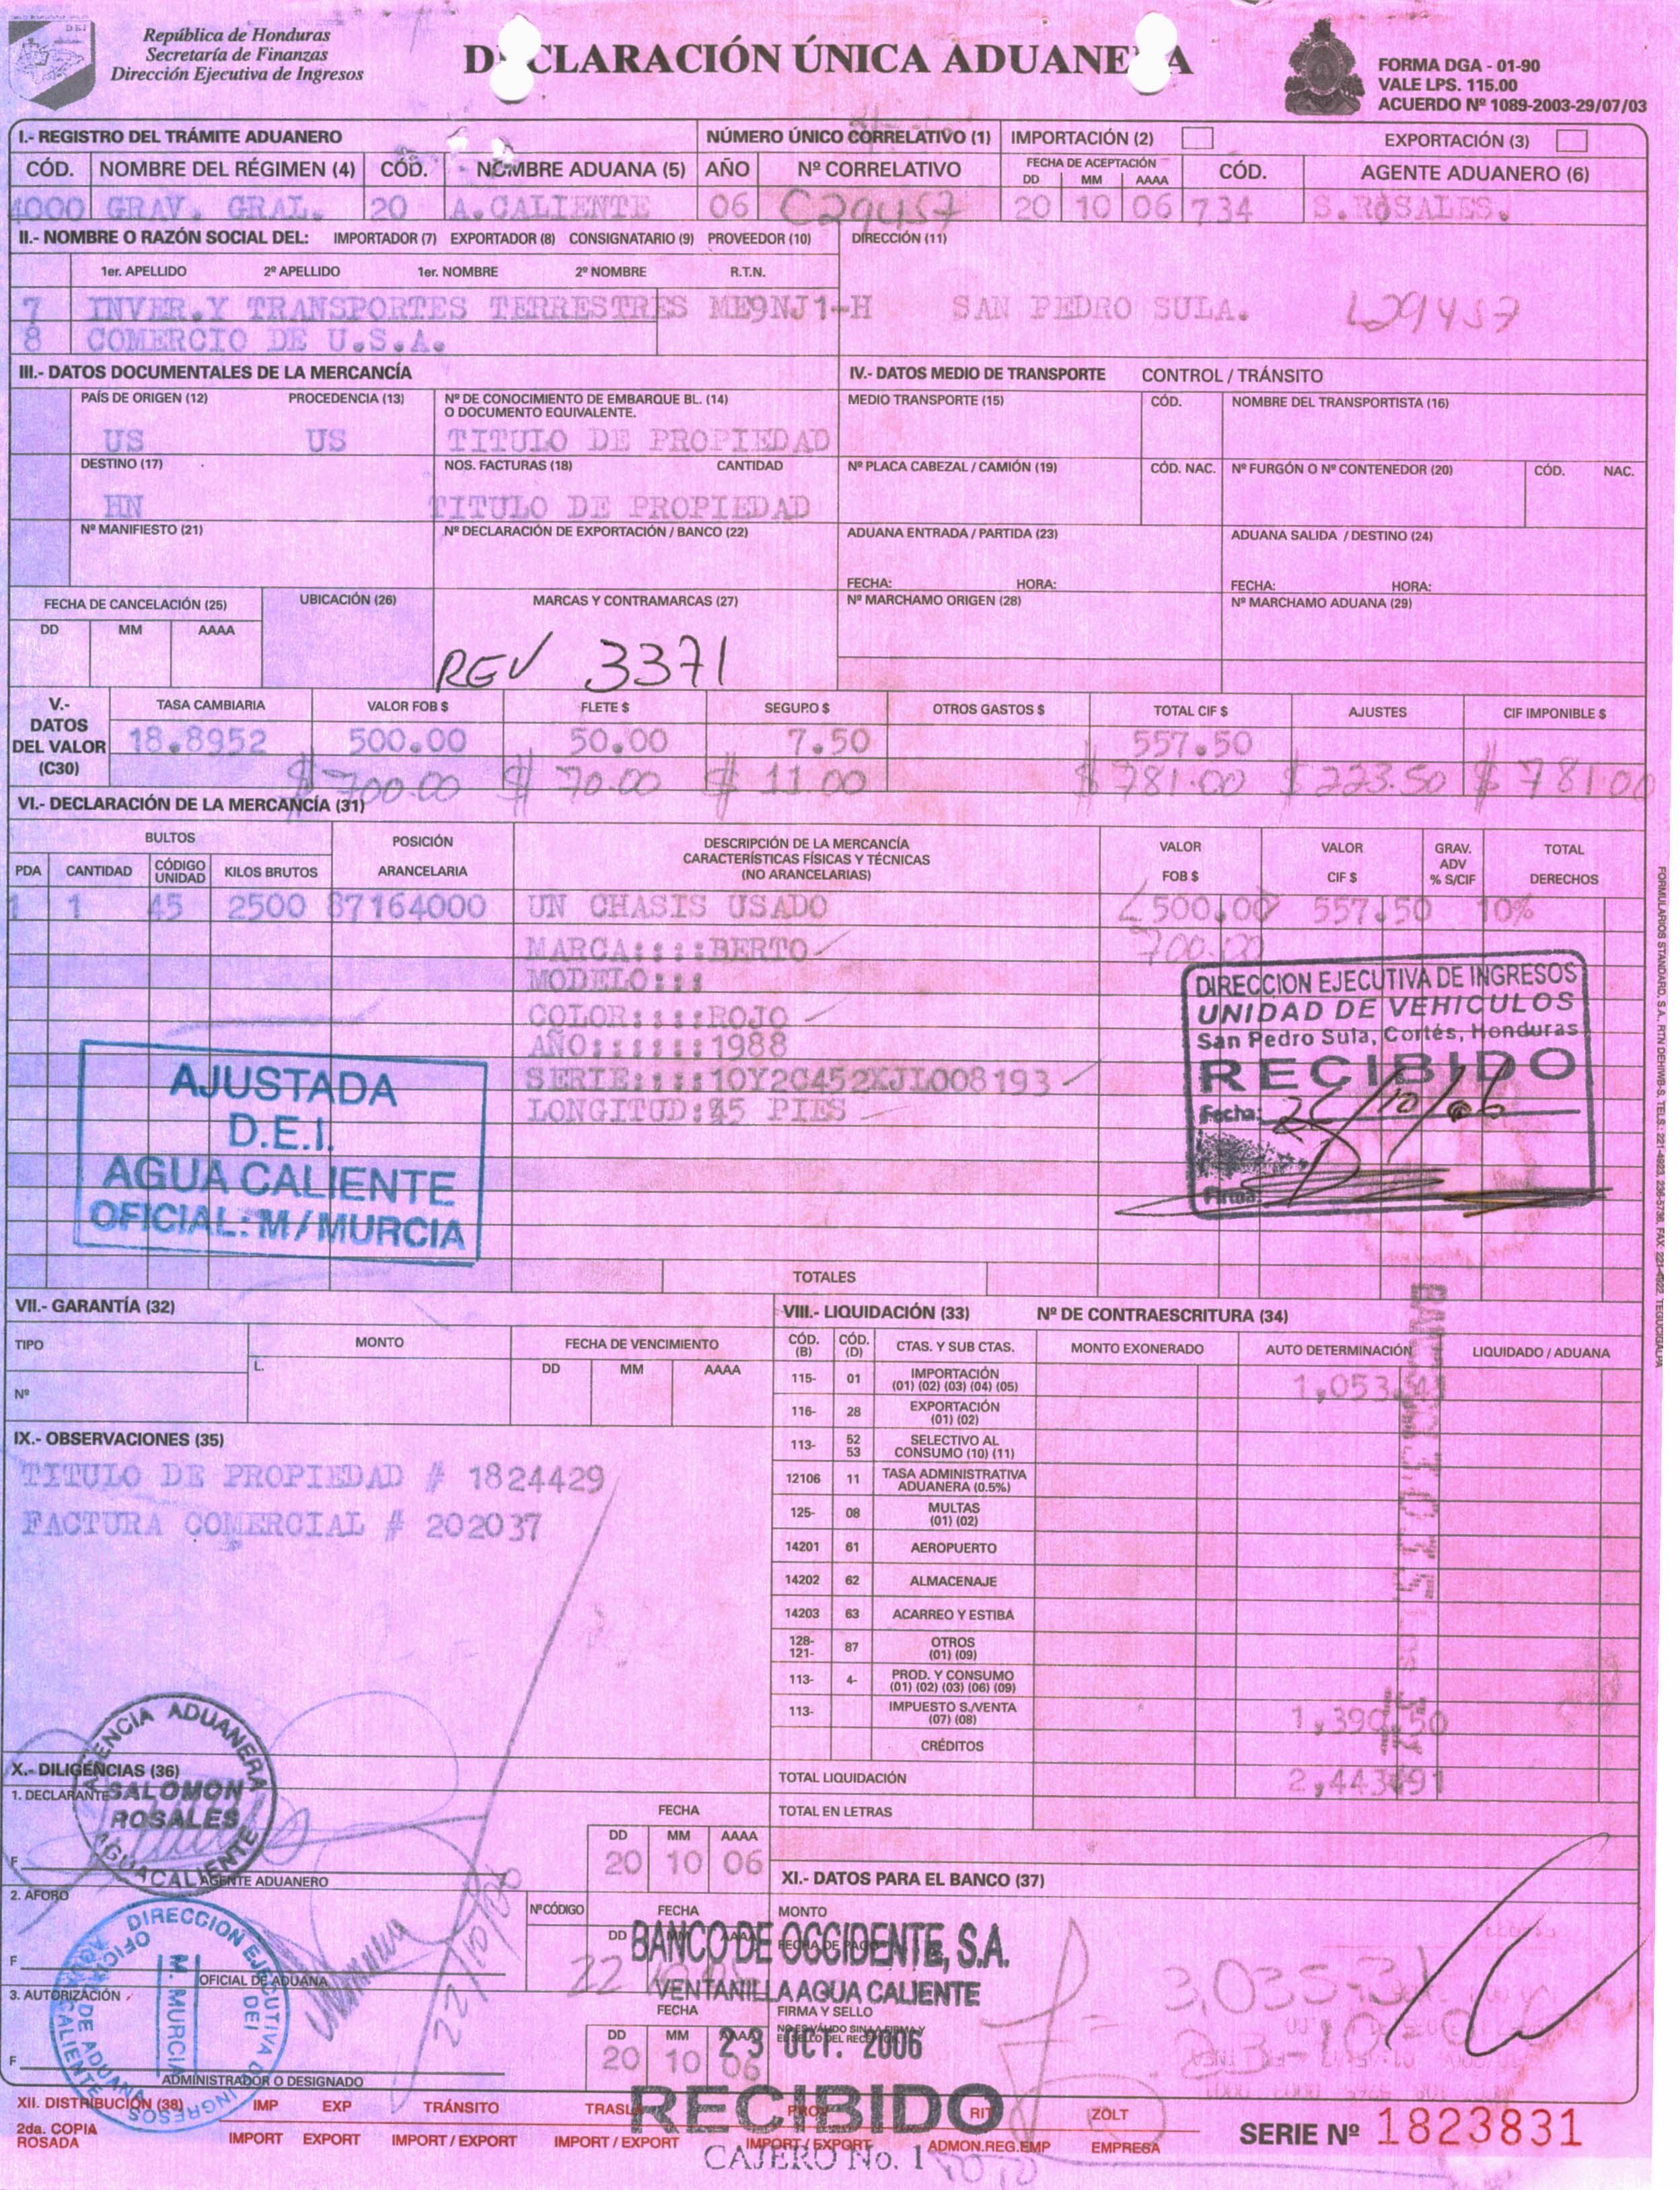 República de Honduras
Secretaría de Finanzas
Dirección Ejecutiva de Ingresos
DECLARACIÓN ÚNICA ADUANERA
FORMA DGA - 01-90
VALE LPS. 115.00
ACUERDO Nº 1089-2003-29/07/03
I.- REGISTRO DEL TRÁMITE ADUANERO NÚMERO ÚNICO CORRELATIVO (1) IMPORTACIÓN (2) EXPORTACIÓN (3)
CÓD. NOMBRE DEL RÉGIMEN (4) CÓD. NOMBRE ADUANA (5) AÑO Nº CORRELATIVO FECHA DE ACEPTACIÓN CÓD. AGENTE ADUANERO (6)
DD MM AAAA
4000 GRAV. GRAL. 20 A.CALIENTE 06 C29457 20 10 06 734 S.ROSALES.
II.- NOMBRE O RAZÓN SOCIAL DEL: IMPORTADOR (7) EXPORTADOR (8) CONSIGNATARIO (9) PROVEEDOR (10) DIRECCIÓN (11)
1er. APELLIDO 2º APELLIDO 1er. NOMBRE 2º NOMBRE R.T.N.
7 INVER.Y TRANSPORTES TERRESTRES ME9NJ1-H SAN PEDRO SULA. L29457
8 COMERCIO DE U.S.A.
III.- DATOS DOCUMENTALES DE LA MERCANCÍA IV.- DATOS MEDIO DE TRANSPORTE CONTROL / TRÁNSITO
PAÍS DE ORIGEN (12) PROCEDENCIA (13) Nº DE CONOCIMIENTO DE EMBARQUE BL. (14) MEDIO TRANSPORTE (15) CÓD. NOMBRE DEL TRANSPORTISTA (16)
O DOCUMENTO EQUIVALENTE.
US US TITULO DE PROPIEDAD
DESTINO (17) NOS. FACTURAS (18) CANTIDAD Nº PLACA CABEZAL / CAMIÓN (19) CÓD. NAC. Nº FURGÓN O Nº CONTENEDOR (20) CÓD. NAC.
HN TITULO DE PROPIEDAD
Nº MANIFIESTO (21) Nº DECLARACIÓN DE EXPORTACIÓN / BANCO (22) ADUANA ENTRADA / PARTIDA (23) ADUANA SALIDA / DESTINO (24)
FECHA: HORA: FECHA: HORA:
FECHA DE CANCELACIÓN (25) UBICACIÓN (26) MARCAS Y CONTRAMARCAS (27) Nº MARCHAMO ORIGEN (28) Nº MARCHAMO ADUANA (29)
DD MM AAAA
REV 3371
V.- DATOS DEL VALOR (C30) TASA CAMBIARIA VALOR FOB $ FLETE $ SEGURO $ OTROS GASTOS $ TOTAL CIF $ AJUSTES CIF IMPONIBLE $
18.8952 500.00 50.00 7.50 557.50
$ 700.00 $ 70.00 $ 11.00 $ 781.00 $ 223.50 $ 781.00
VI.- DECLARACIÓN DE LA MERCANCÍA (31)
BULTOS POSICIÓN DESCRIPCIÓN DE LA MERCANCÍA VALOR VALOR GRAV. TOTAL
CARACTERÍSTICAS FÍSICAS Y TÉCNICAS ADV
PDA CANTIDAD CÓDIGO UNIDAD KILOS BRUTOS ARANCELARIA (NO ARANCELARIAS) FOB $ CIF $ % S/CIF DERECHOS
1 1 45 2500 87164000 UN CHASIS USADO 500.00 557.50 10%
MARCA::::BERTO 700.00
MODELO:::
COLOR:::::ROJO
AÑO:::::::1988
SERIE:::::10Y2C452XJL008193
LONGITUD:45 PIES
DIRECCION EJECUTIVA DE INGRESOS
UNIDAD DE VEHICULOS
San Pedro Sula, Cortés, Honduras
RECIBIDO
Fecha: /10/06
Firma:
AJUSTADA
D.E.I.
AGUA CALIENTE
OFICIAL: M/MURCIA
TOTALES
VII.- GARANTÍA (32) VIII.- LIQUIDACIÓN (33) Nº DE CONTRAESCRITURA (34)
TIPO MONTO FECHA DE VENCIMIENTO CÓD. (B) CÓD. (D) CTAS. Y SUB CTAS. MONTO EXONERADO AUTO DETERMINACIÓN LIQUIDADO / ADUANA
L. DD MM AAAA
Nº
115- 01 IMPORTACIÓN (01) (02) (03) (04) (05) 1,053.
116- 28 EXPORTACIÓN (01) (02)
113- 52 53 SELECTIVO AL CONSUMO (10) (11)
12106 11 TASA ADMINISTRATIVA ADUANERA (0.5%)
125- 08 MULTAS (01) (02)
14201 61 AEROPUERTO
14202 62 ALMACENAJE
14203 63 ACARREO Y ESTIBA
128- 121- 87 OTROS (01) (09)
113- 4- PROD. Y CONSUMO (01) (02) (03) (06) (09)
113- IMPUESTO S./VENTA (07) (08) 1,390.50
CRÉDITOS
TOTAL LIQUIDACIÓN 2,443.91
TOTAL EN LETRAS
IX.- OBSERVACIONES (35)
TITULO DE PROPIEDAD # 1824429
FACTURA COMERCIAL # 202037
X.- DILIGENCIAS (36)
1. DECLARANTE
AGENCIA ADUANERA
SALOMON
ROSALES
AGUACALIENTE
FECHA
DD MM AAAA
20 10 06
F AGENTE ADUANERO
2. AFORO
Nº CÓDIGO FECHA
DD
22
F OFICIAL DE ADUANA
22/10/06
DIRECCION EJECUTIVA DE INGRESOS
DEI
M. MURCIA
OFICIAL DE ADUANA
AGUA CALIENTE
3. AUTORIZACIÓN
FECHA
DD MM AAAA
20 10 06
F ADMINISTRADOR O DESIGNADO
XI.- DATOS PARA EL BANCO (37)
MONTO
FECHA DE PAGO
FIRMA Y SELLO
BANCO DE OCCIDENTE, S.A.
VENTANILLA AGUA CALIENTE
23 OCT. 2006
RECIBIDO
CAJERO No. 1
3,035.31
XII. DISTRIBUCIÓN (38) IMP EXP TRÁNSITO TRASL RIT ZOLT
2da. COPIA ROSADA IMPORT EXPORT IMPORT / EXPORT IMPORT / EXPORT IMPORT / EXPORT ADMON.REG.EMP EMPRESA
SERIE Nº 1823831
FORMULARIOS STANDARD, S.A.